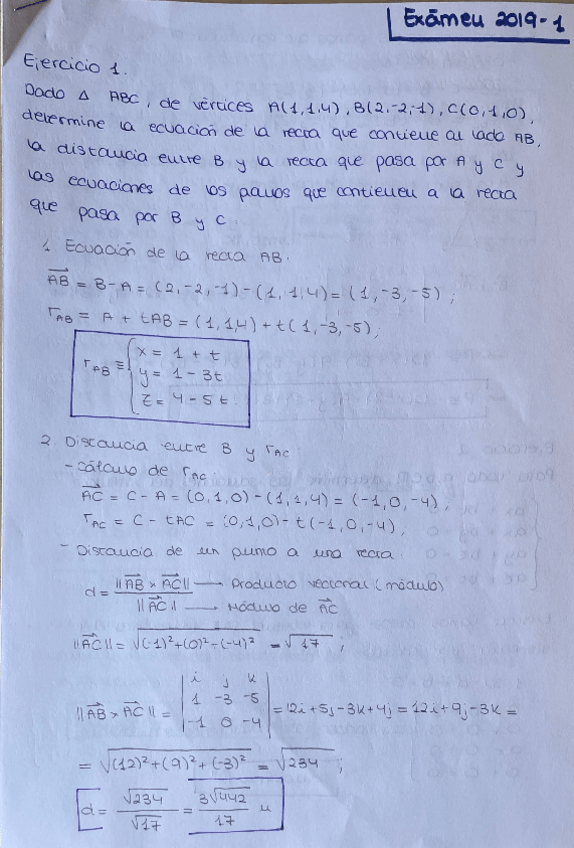 Exámen 2019-1
Ejercicio 1.
Dado Δ ABC, de vértices A(1,1,4), B(2,-2,-1), C(0,1,0),
determine la ecuación de la recta que contiene al lado AB,
la distancia entre B y la recta que pasa por A y C y
las ecuaciones de los planos que contienen a la recta
que pasa por B y C.
1. Ecuación de la recta AB.
→AB = B-A = (2,-2,-1)-(1,1,4) = (1,-3,-5);
r_AB = A + tAB = (1,1,4)+t(1,-3,-5);
r_AB ≡ { x = 1 + t
y = 1 - 3t
z = 4 - 5t
2. Distancia entre B y r_AC:
- cálculo de r_AC:
→AC = C - A = (0,1,0)-(1,1,4) = (-1,0,-4);
r_AC = C - tAC = (0,1,0)-t(-1,0,-4);
- Distancia de un punto a una recta:
d = ||→AB × →AC|| → Producto vectorial (módulo)
||→AC|| → Módulo de →AC
||→AC|| = √(-1)²+(0)²+(-4)² = √17;
||→AB × →AC|| = | i j k
1 -3 -5
-1 0 -4 | = 12i+5j-3k+4j = 12i+9j-3k =
= √(12)²+(9)²+(-3)² = √234;
d = √234/√17 = 3√442/17 u